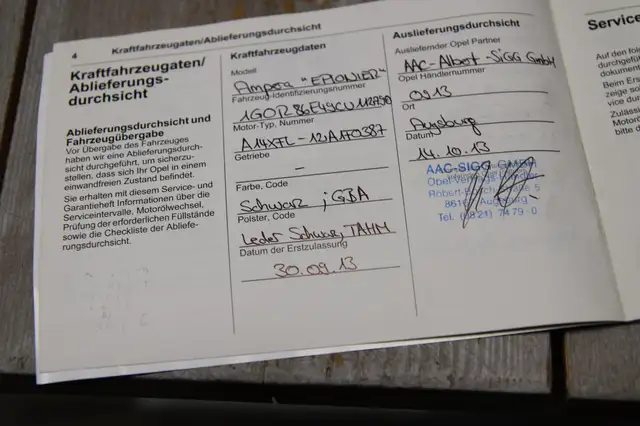 4
Kraftfahrzeugaten/Ablieferungsdurchsicht
Kraftfahrzeugaten/
Ablieferungs-
durchsicht
Ablieferungsdurchsicht und
Fahrzeugübergabe
Vor Übergabe des Fahrzeuges
haben wir eine Ablieferungsdurch-
sicht durchgeführt, um sicherzu-
stellen, dass sich Ihr Opel in einem
einwandfreien Zustand befindet.
Sie erhalten mit diesem Service- und
Garantieheft Informationen über die
Serviceintervalle, Motorölwechsel,
Prüfung der erforderlichen Füllstände
sowie die Checkliste der Abliefe-
rungsdurchsicht.
Kraftfahrzeugdaten
Modell
Ampera "EPIONIER"
Fahrzeug-Identifizierungsnummer
Motor-Typ, Nummer
A14XFL-12A1F0387
Getriebe
–
Farbe, Code
Schwarz ; GBA
Polster, Code
Leder Schwarz, TAHM
Datum der Erstzulassung
30.09.13
Auslieferungsdurchsicht
Ausliefernder Opel Partner
AAC-Albert-SIGG GmbH
Opel Händlernummer
0913
Ort
Augsburg
Datum
14.10.13
AAC-SIGG GMBH
Opel
Robert- 5
Tel. (0821) 7479-0
Service
Auf den
durchgefü
dokument
Beim Ers
zeige so
vice du
Zuläss
Motor
bitte